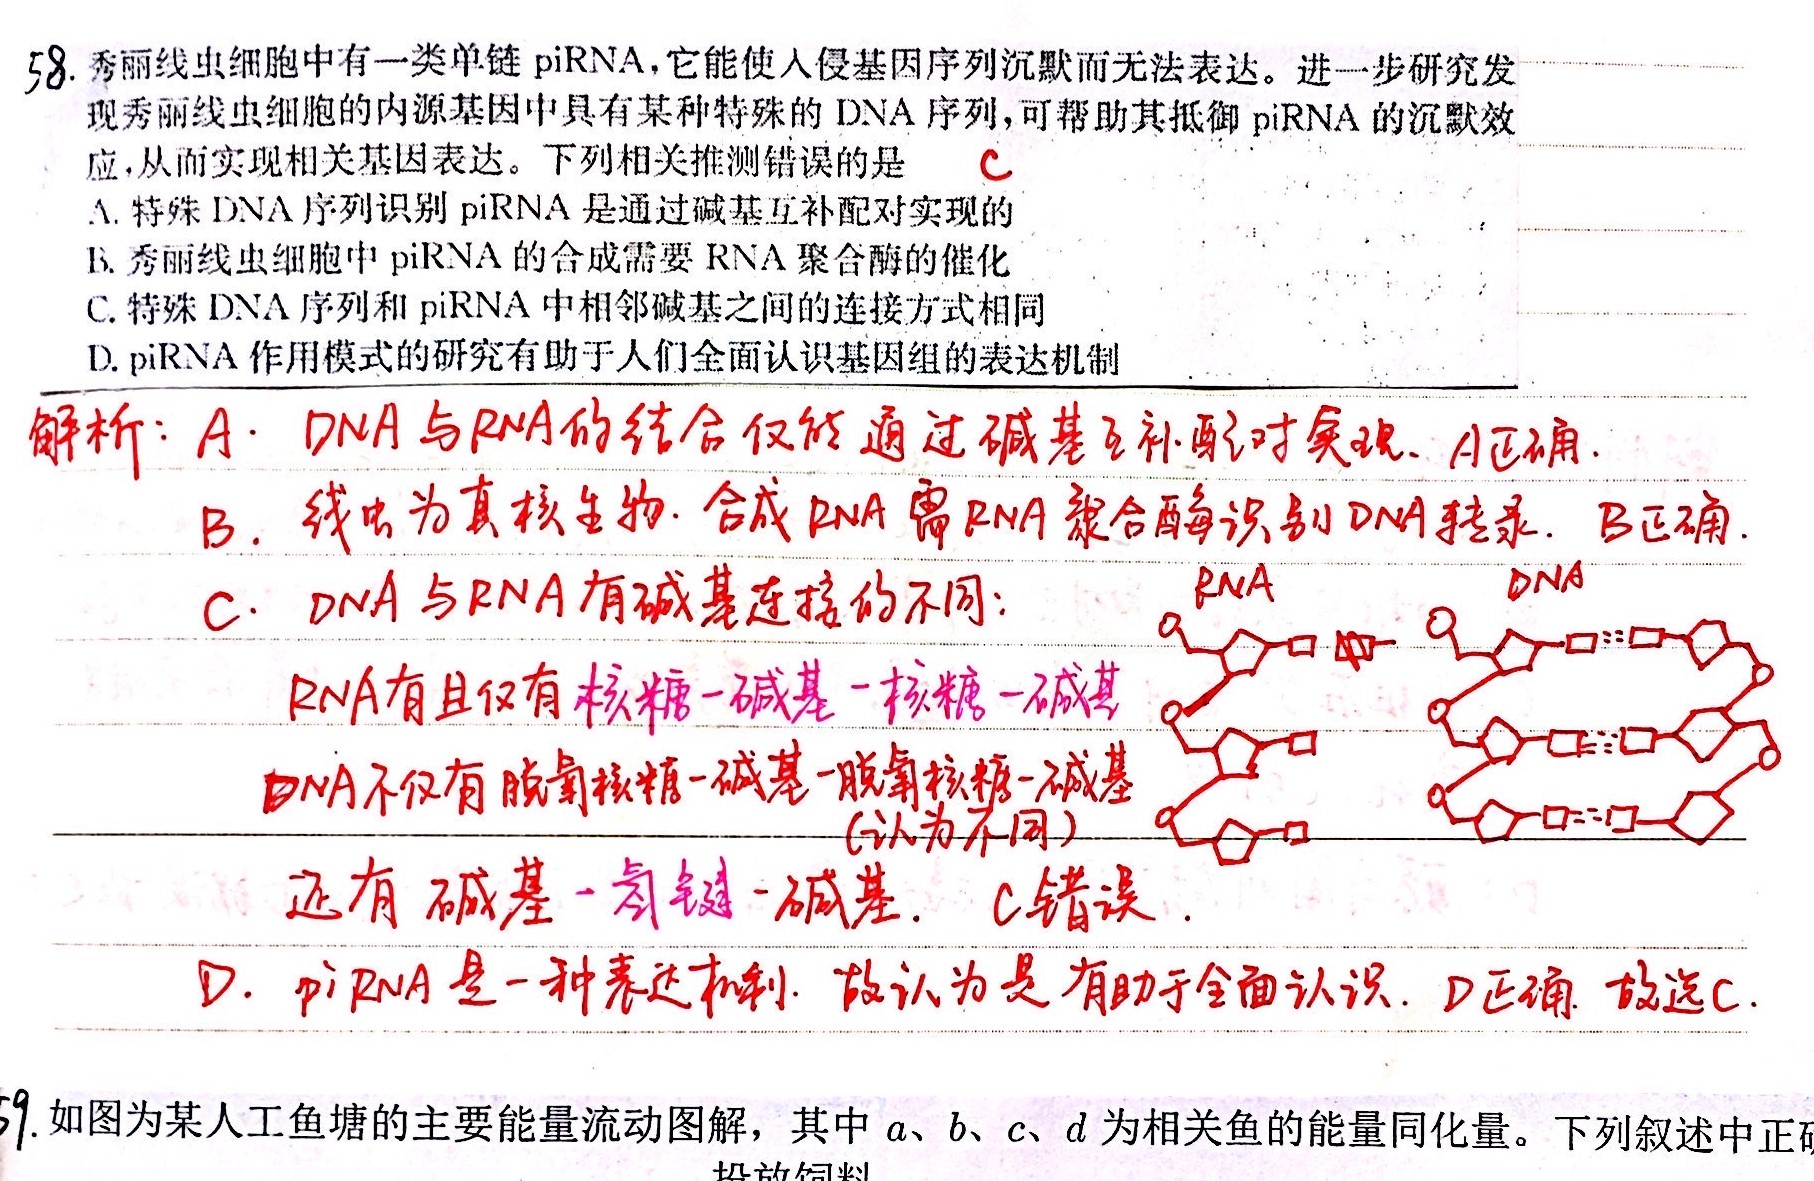 58. 秀丽线虫细胞中有一类单链 piRNA,它能使入侵基因序列沉默而无法表达。进一步研究发
现秀丽线虫细胞的内源基因中具有某种特殊的 DNA 序列,可帮助其抵御 piRNA 的沉默效
应,从而实现相关基因表达。下列相关推测错误的是 C
A. 特殊 DNA 序列识别 piRNA 是通过碱基互补配对实现的
B. 秀丽线虫细胞中 piRNA 的合成需要 RNA 聚合酶的催化
C. 特殊 DNA 序列和 piRNA 中相邻碱基之间的连接方式相同
D. piRNA 作用模式的研究有助于人们全面认识基因组的表达机制
解析: A. DNA与RNA的结合仅能通过碱基互补配对实现、A正确.
B. 线虫为真核生物. 合成RNA需RNA聚合酶识别DNA转录. B正确.
C. DNA与RNA有碱基连接的不同:
RNA DNA
RNA有且仅有核糖-碱基-核糖-碱基
DNA不仅有脱氧核糖-碱基-脱氧核糖-碱基
(认为不同)
还有碱基-氢键-碱基. C错误.
D. piRNA是一种表达机制. 故认为是有助于全面认识. D正确. 故选C.
59. 如图为某人工鱼塘的主要能量流动图解，其中 a、b、c、d 为相关鱼的能量同化量。下列叙述中正确
投放饲料